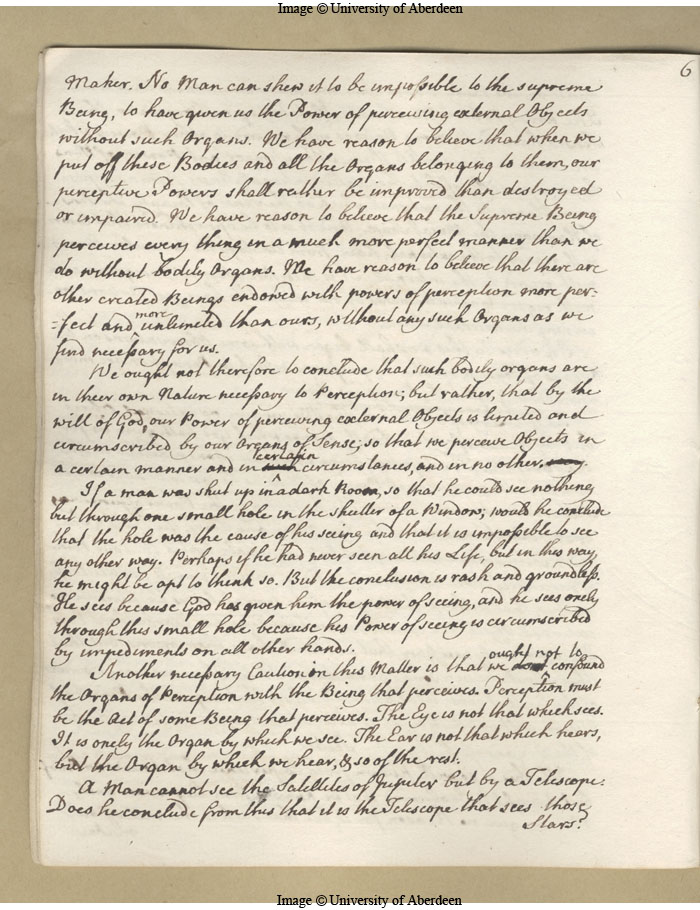 Image © University of Aberdeen
6
Maker. No Man can shew it to be impossible to the supreme
Being, to have given us the Power of perceiving external Objects
without such Organs. We have reason to believe that when we
put off these Bodies and all the Organs belonging to them, our
perceptive Powers shall rather be improved than destroyed
or impaired. We have reason to believe that the Supreme Being
perceives every thing in a much more perfect manner than we
do without bodily Organs. We have reason to believe that there are
other created Beings endowed with powers of perception more per=
=fect and more unlimited than ours, without any such Organs as we
find necessary for us.
We ought not therefore to conclude that such bodily organs are
in their own Nature necessary to Perception; but rather, that by the
will of God, our Power of perceiving external Objects is limited and
circumscribed by our Organs of Sense; so that we perceive Objects in
a certain manner and in such certain circumstances, and in no other.
If a man was shut up in a dark Room, so that he could see nothing
but through one small hole in the shutter of a Window; would he conclude
that the hole was the cause of his seeing and that it is impossible to see
any other way. Perhaps if he had never seen all his Life, but in this way,
he might be apt to think so. But the conclusion is rash and groundless.
He sees because God has given him the power of seeing, and he sees onely
through this small hole because his Power of seeing is circumscribed
by impediments on all other hands.
Another necessary Caution in this Matter is that we ought not to confound
the Organs of Perception with the Being that perceives. Perception must
be the Act of some Being that perceives. The Eye is not that which sees.
It is onely the Organ by which we see. The Ear is not that which hears,
but the Organ by which we hear, & so of the rest.
A Man cannot see the Satellites of Jupiter but by a Telescope.
Does he conclude from this that it is the Telescope that sees those
Stars?
Image © University of Aberdeen